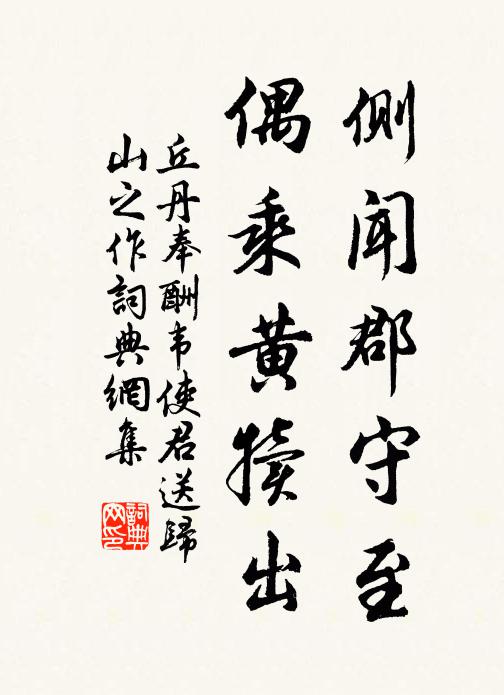 側聞郡守至
偶乘黃犢出
丘丹奉酬韦使君送歸
山之作詞典網集
詞典
网印